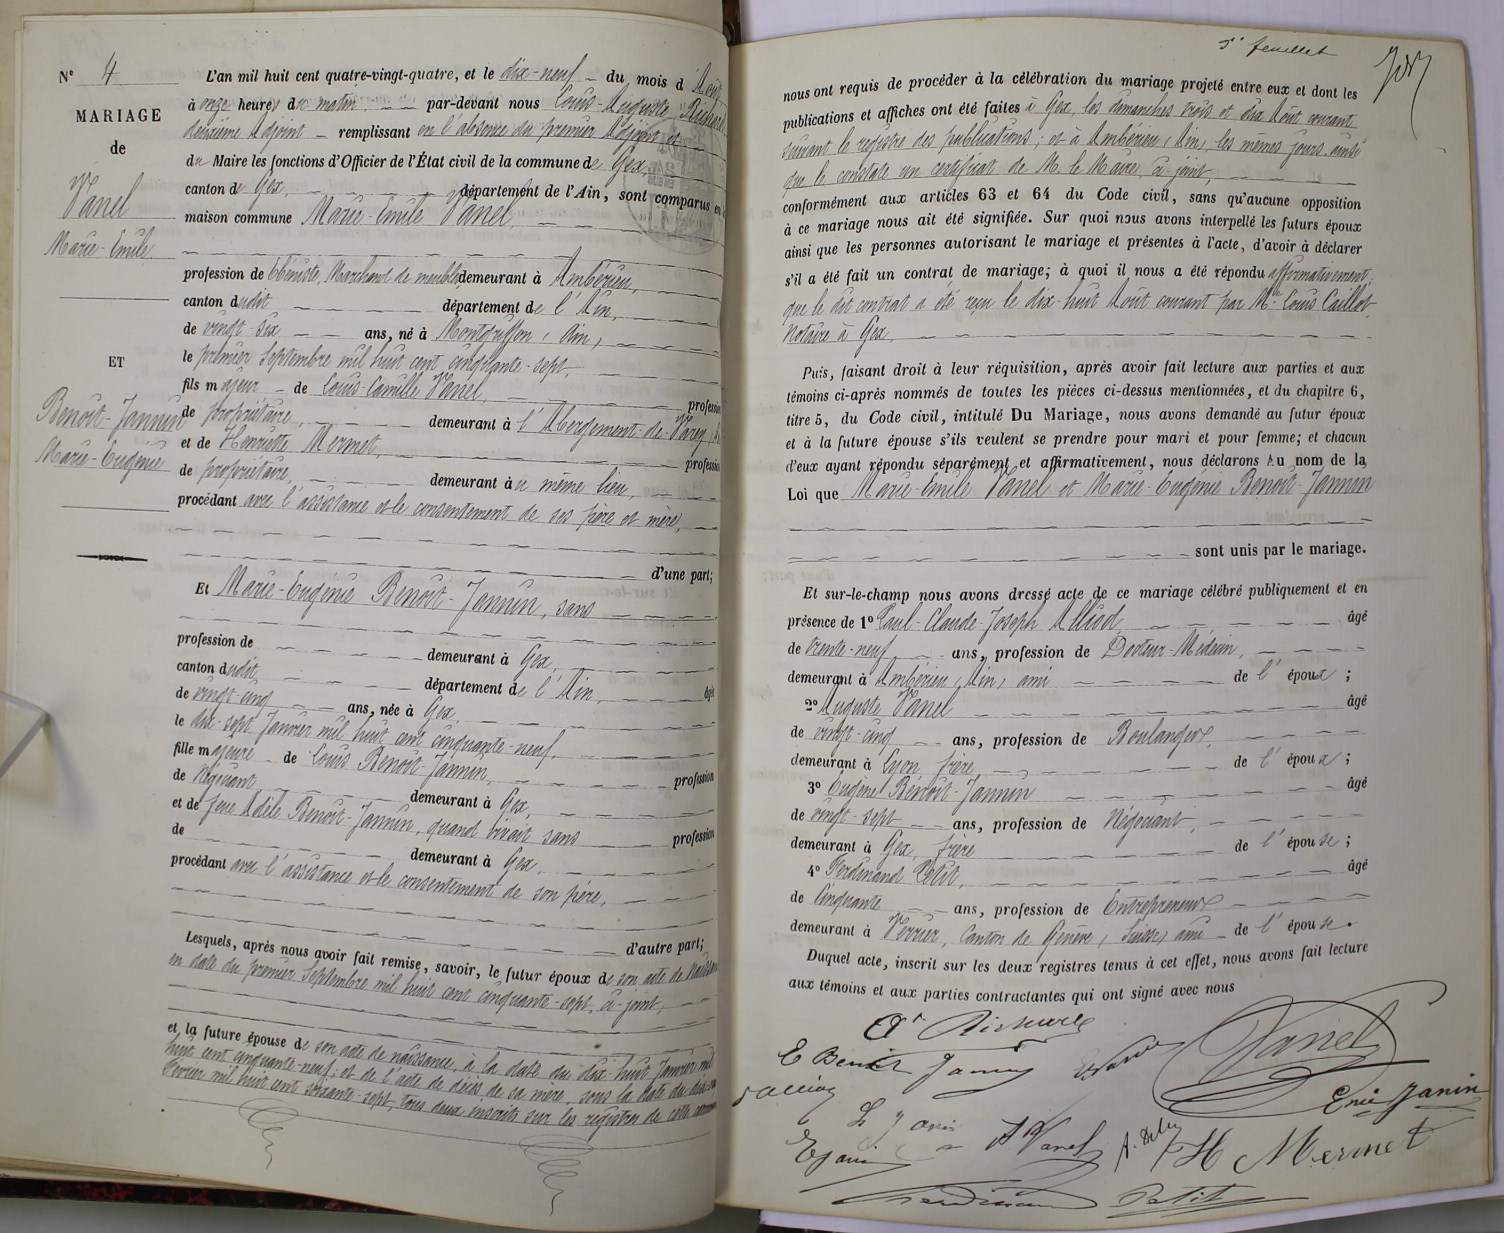 N° 4
MARIAGE
de
Vanel
Marie-Emile
ET
Benoît-Jannin
Marie-Eugénie
L'an mil huit cent quatre-vingt-quatre, et le dix-neuf du mois d'Août
à onze heures du matin par-devant nous Louis-Auguste Richard
deuxième Adjoint remplissant en l'absence du premier Adjoint et
du Maire les fonctions d'Officier de l'État civil de la commune de Gex,
canton de Gex, département de l'Ain, sont comparus en
maison commune Marie-Emile Vanel,
profession de Ebéniste, Marchand de meubles demeurant à Ambérieu,
canton dudit département de l'Ain,
de vingt-six ans, né à Montgriffon, Ain,
le premier Septembre mil huit cent cinquante-sept,
fils majeur de Louis-Camille Vanel profession
de propriétaire, demeurant à l'Abergement-de-Varey,
et de Henriette Mermet, profession
de propriétaire, demeurant au même lieu,
procédant avec l'assistance et le consentement de ses père et mère,
d'une part;
Et Marie-Eugénie Benoît-Jannin, sans
profession de demeurant à Gex,
canton dudit département de l'Ain, âgée
de vingt-cinq ans, née à Gex,
le dix-sept Janvier mil huit cent cinquante-neuf,
fille majeure de Louis Benoît-Jannin, profession
de Négociant demeurant à Gex,
et de feue Adèle Benoît-Jannin, quand vivait sans profession
de demeurant à Gex,
procédant avec l'assistance et le consentement de son père,
d'autre part;
Lesquels, après nous avoir fait remise, savoir, le futur époux de son acte de naissance
en date du premier Septembre mil huit cent cinquante-sept, ci-joint,
et la future épouse de son acte de naissance, à la date du dix-huit Janvier mil
huit cent cinquante-neuf; et de l'acte de décès de sa mère, sous la date du
Février mil huit cent soixante-sept, tous deux inscrits sur les registres de cette commune
5e feuillet
nous ont requis de procéder à la célébration du mariage projeté entre eux et dont les
publications et affiches ont été faites à Gex, les dimanches trois et dix Août courant
suivant le registre des publications; et à Ambérieu, Ain, les mêmes jours, ainsi
que le constate un certificat de M. le Maire, ci-joint,
conformément aux articles 63 et 64 du Code civil, sans qu'aucune opposition
à ce mariage nous ait été signifiée. Sur quoi nous avons interpellé les futurs époux
ainsi que les personnes autorisant le mariage et présentes à l'acte, d'avoir à déclarer
s'il a été fait un contrat de mariage; à quoi il nous a été répondu affirmativement,
que le dit contrat a été reçu le dix-huit Août courant par Me Louis Caillot,
Notaire à Gex.
Puis, faisant droit à leur réquisition, après avoir fait lecture aux parties et aux
témoins ci-après nommés de toutes les pièces ci-dessus mentionnées, et du chapitre 6,
titre 5, du Code civil, intitulé Du Mariage, nous avons demandé au futur époux
et à la future épouse s'ils veulent se prendre pour mari et pour femme; et chacun
d'eux ayant répondu séparément et affirmativement, nous déclarons Au nom de la
Loi que Marie-Emile Vanel et Marie-Eugénie Benoît-Jannin
sont unis par le mariage.
Et sur-le-champ nous avons dressé acte de ce mariage célébré publiquement et en
présence de 1° Paul-Claude-Joseph Alliod âgé
de trente-neuf ans, profession de Docteur-Médecin,
demeurant à Ambérieu, Ain, ami de l'époux;
2° Auguste Vanel âgé
de vingt-cinq ans, profession de Boulanger,
demeurant à Lyon, frère de l'époux;
3° Eugène Benoît-Jannin âgé
de vingt-sept ans, profession de Négociant,
demeurant à Gex, frère de l'épouse;
4° Ferdinand Petit, âgé
de Cinquante ans, profession de Entrepreneur
demeurant à Verrier, Canton de Genève, Suisse, ami de l'épouse.
Duquel acte, inscrit sur les deux registres tenus à cet effet, nous avons fait lecture
aux témoins et aux parties contractantes qui ont signé avec nous
Ate Richard
E Benoit Jannin
Vanel
Alliod
Enie Janin
A Vanel
H Mermet
E Janin
Ferdinand Petit